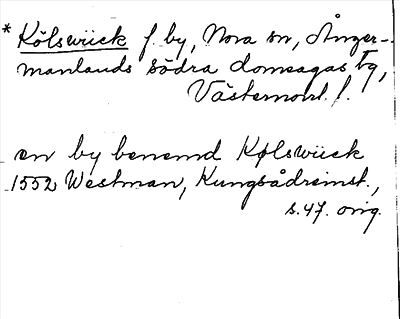 * Kölswiick f. by, Nora sn, Ånger-
manlands södra domsagas tg,
Västernorrl. l.
en by benemd Kølswiick
1552 Westman, Kungsådreinst.,
s. 47. orig.